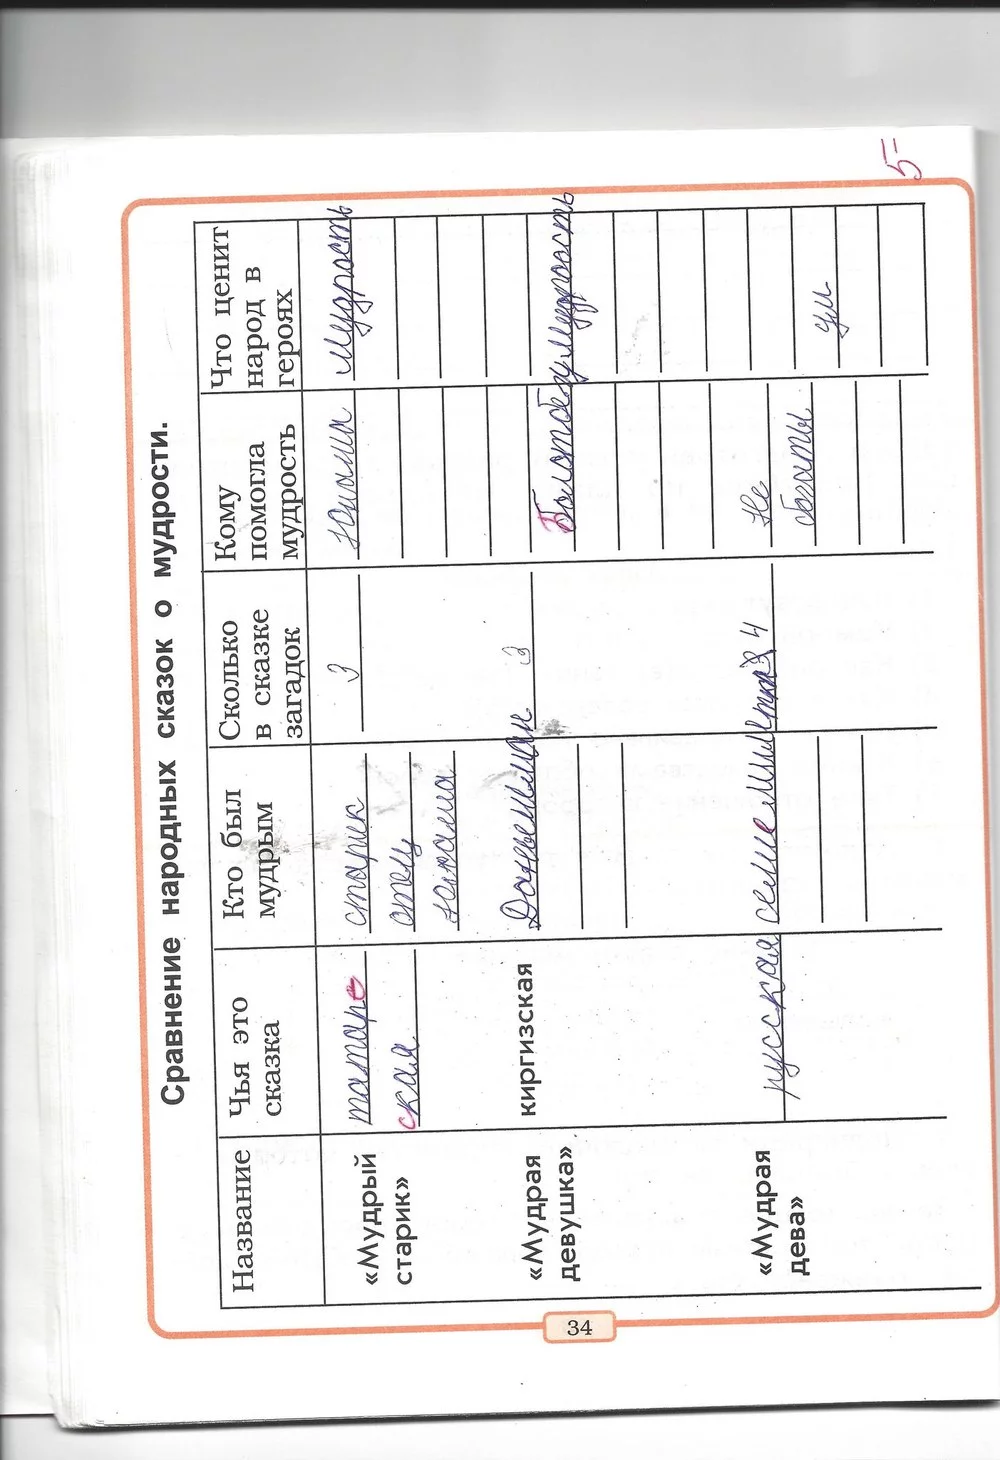 5-
Сравнение народных сказок о мудрости.
Название
Чья это
сказка
Кто был
мудрым
Сколько
в сказке
загадок
Кому
помогла
мудрость
Что ценит
народ в
героях
«Мудрый
старик»
татарс
ская
старик
отец
юноша
3
юноша
мудрость
«Мудрая
девушка»
киргизская
Данышман
3
Болотбеку
мудрость
«Мудрая
дева»
русская
семилетка
4
Не
богаты
ум
34